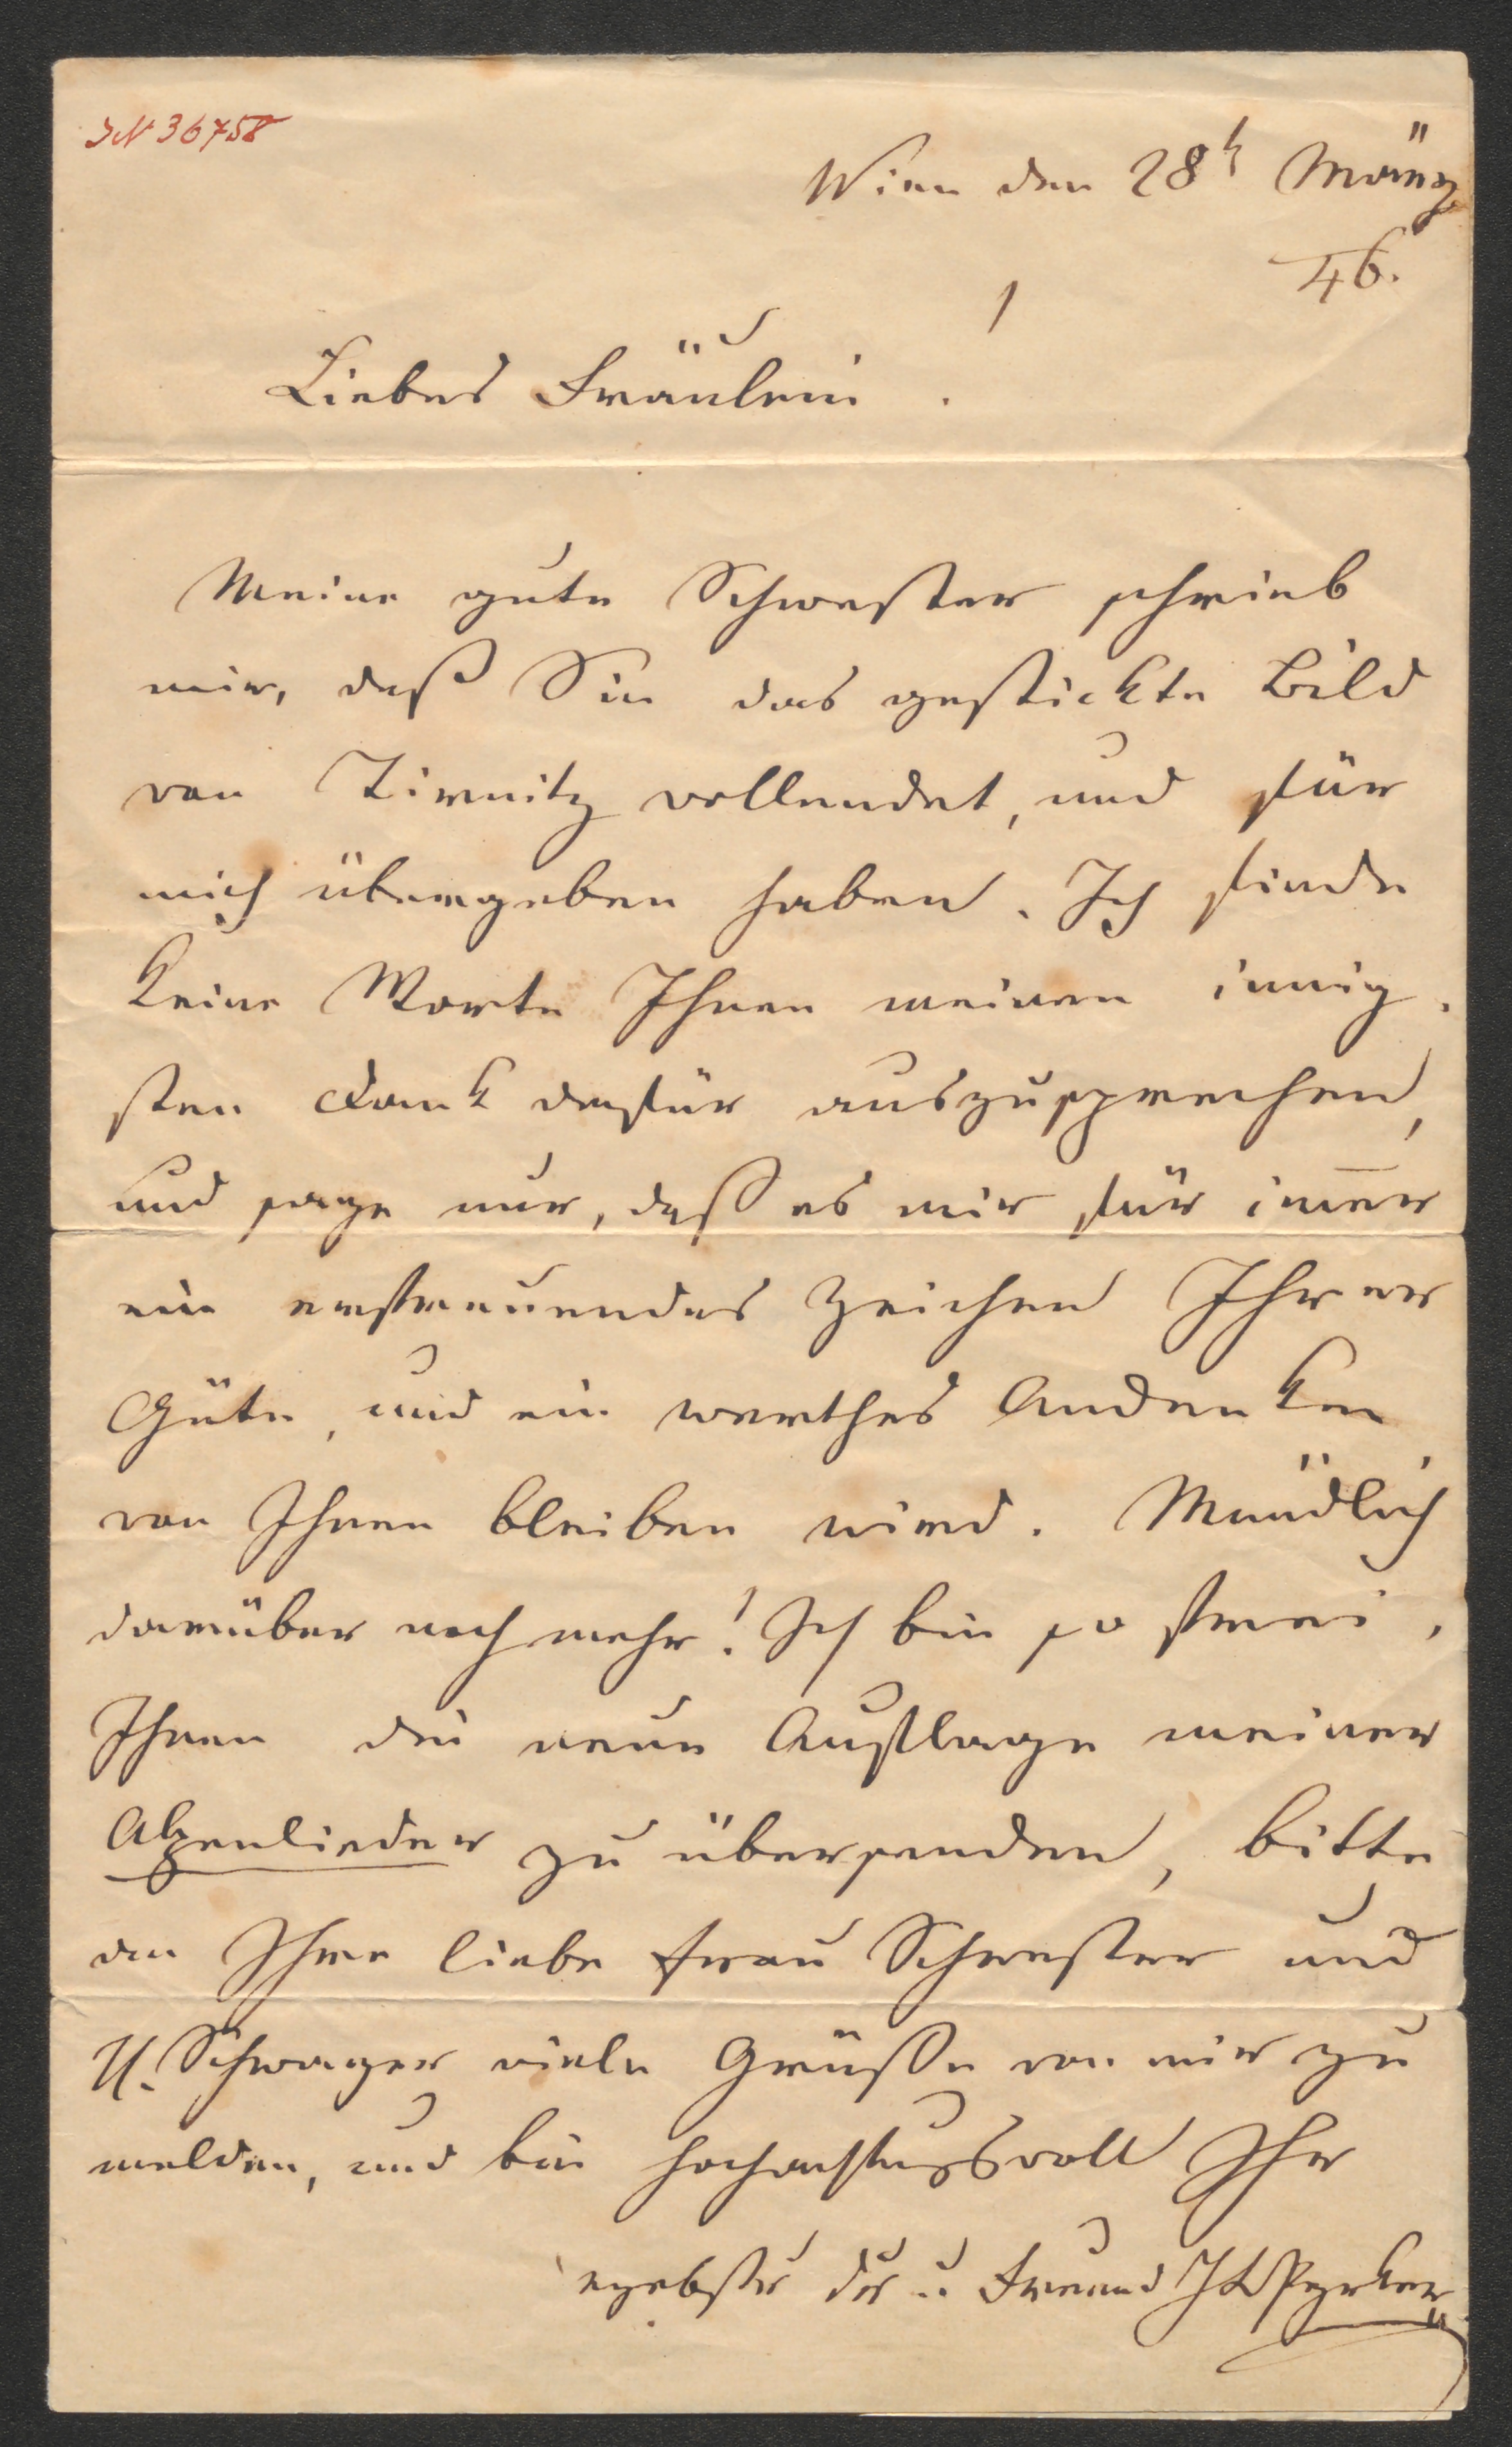 JN 36758
Wien den 28t März
46.
Liebes Fräulein !
Meine gute Schwester schrieb
mir, daß Sie das gestickte Bild
von Tirnitz vollendet, und für
mich übergeben haben. Ich finde
keine Worte Ihnen meinen innig-
sten Dank dafür auszusprechen,
und sage nur, daß es mir für im̅er
ein erfreuendes Zeichen Ihrer
Güte, und ein werthes Andenken
von Ihnen bleiben wird. Mündlich
darüber noch mehr! Ich bin so frei,
Ihnen die neue Auflage meiner
Alpenlieder zu übersenden, bitte
an Ihre liebe Frau Schwester und
H. Schwager viele Grüße von mir zu
melden, und bin hochachtungsvoll Ihr
Freund J L Pyrker